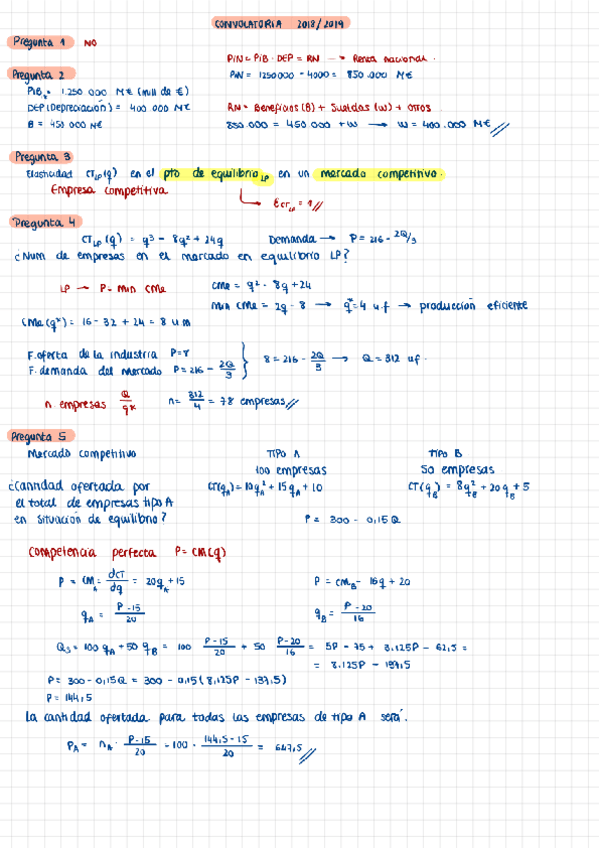 CONVOLATORIA 2018/2019
Pregunta 1 NO
PiN = PiB - DEP = RN → Renta nacional.
Pregunta 2
PiN = 1250000 - 4000 = 850.000 M€
PiB = 1.250.000 M€ (mill de €)
DEP (Depreciación) = 400.000 M€
RN = Beneficios (B) + Sueldos (W) + otros
B = 450.000 M€
850.000 = 450.000 + W → W = 400.000 M€
Pregunta 3
Elasticidad CT_LP(q) en el pto de equilibrio_LP en un mercado competitivo.
Empresa competitiva
E_CT_LP = 1
Pregunta 4
CT_LP(q) = q³ - 8q² + 24q Demanda → P = 216 - 2Q/3
¿Num de empresas en el mercado en equilibrio LP?
LP → P = min CMe
CMe = q² - 8q + 24
min CMe = 2q - 8 → q* = 4 u.f → producción eficiente
CMe(q*) = 16 - 32 + 24 = 8 u m
F. oferta de la industria P = 8
F. demanda del mercado P = 216 - 2Q/3
8 = 216 - 2Q/3 → Q = 312 uf.
n. empresas Q/q* n = 312/4 = 78 empresas
Pregunta 5
Mercado competitivo TIPO A TIPO B
100 empresas 50 empresas
¿Cantidad ofertada por el total de empresas tipo A en situación de equilibrio?
CT(q_A) = 10q_A² + 15q_A + 10 CT(q_B) = 8q_B² + 20q_B + 5
P = 300 - 0,15Q
Competencia perfecta P = CM(q)
P = CM_A = dCT/dq = 20q_A + 15 P = CM_B - 16q + 20
q_A = P - 15/20 q_B = P - 20/16
Q_s = 100 q_A + 50 q_B = 100 P - 15/20 + 50 P - 20/16 = 5P - 75 + 3.125P - 62,5 =
= 8.125P - 137,5
P = 300 - 0,15Q = 300 - 0,15 (8,125P - 137,5)
P = 144,5
La cantidad ofertada para todas las empresas de tipo A será:
P_A = n_A · P - 15/20 = 100 · 144,5 - 15/20 = 647,5